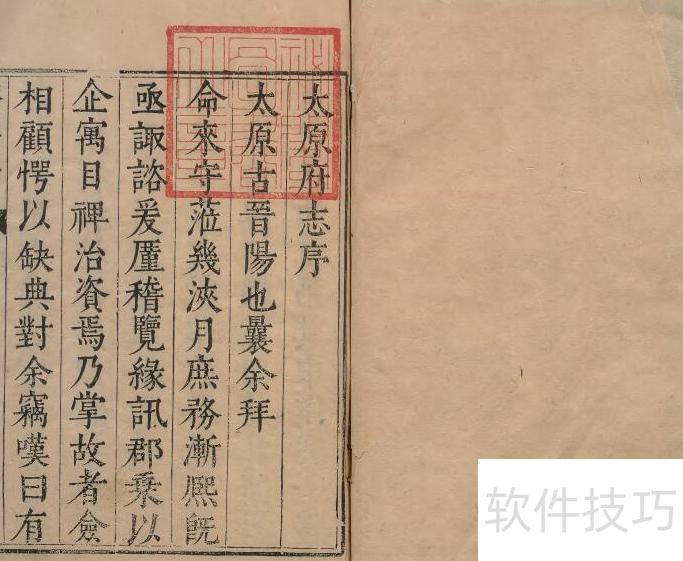 太原府志序
太原古晉陽也曩余拜
命來守蒞幾浹月庶務漸熙旣
亟諏諮爰厪稽覽緣訊郡乗以
企寓目禆治資焉乃掌故者僉
相顧愕以缺典對余竊嘆曰有
软件技巧